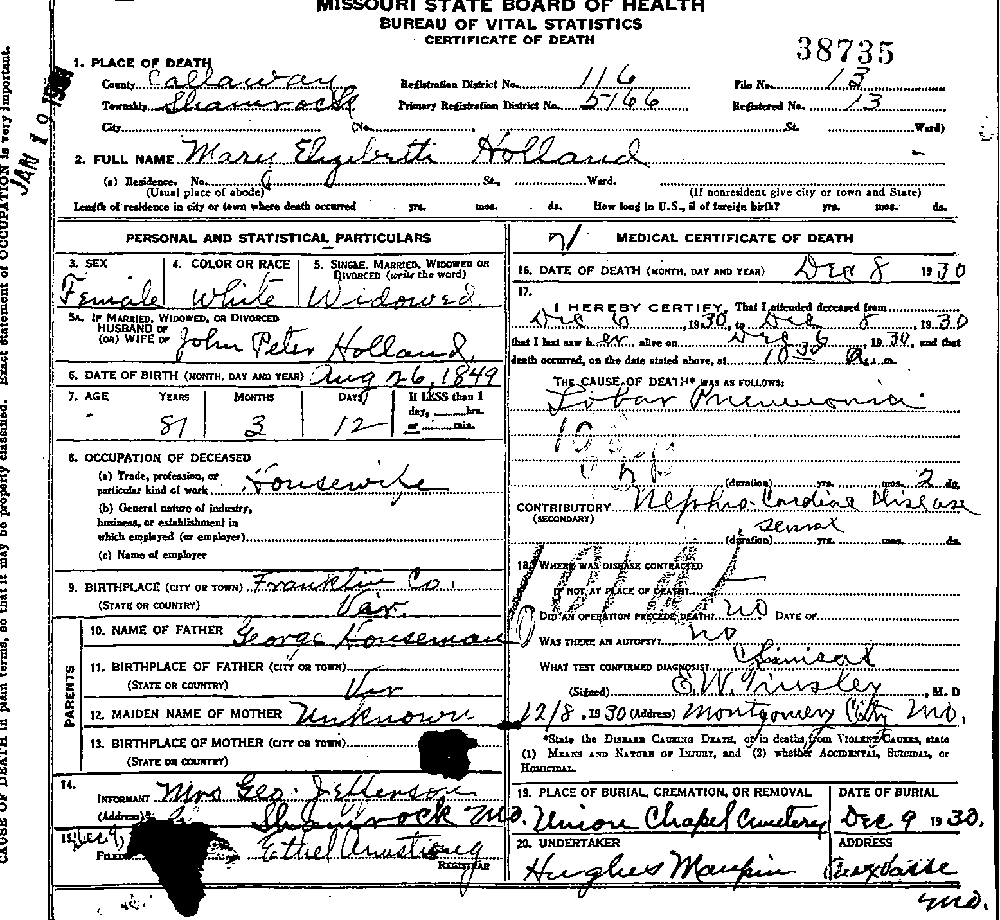 MISSOURI STATE BOARD OF HEALTH
BUREAU OF VITAL STATISTICS
CERTIFICATE OF DEATH
38735
JAN 10
1. PLACE OF DEATH
County Callaway Registration District No. 116 File No. 13
Township Shamrock Primary Registration District No. 5166 Registered No. 13
City (No. St. Ward)
2. FULL NAME Mary Elizibeth Holland
(a) Residence. No. St. Ward.
(Usual place of abode) (If nonresident give city or town and State)
Length of residence in city or town where death occurred yrs. mos. ds. How long in U.S., if of foreign birth? yrs. mos. ds.
PERSONAL AND STATISTICAL PARTICULARS
3. SEX 4. COLOR OR RACE 5. SINGLE, MARRIED, WIDOWED OR
DIVORCED (write the word)
Female White Widowed
5A. IF MARRIED, WIDOWED, OR DIVORCED
HUSBAND OF
(OR) WIFE OF John Peter Holland
6. DATE OF BIRTH (MONTH, DAY AND YEAR) Aug 26, 1849
7. AGE YEARS MONTHS DAYS If LESS than 1
day, hrs.
or min.
81 3 12
8. OCCUPATION OF DECEASED
(a) Trade, profession, or
particular kind of work Housewife
(b) General nature of industry,
business, or establishment in
which employed (or employer)
(c) Name of employer
9. BIRTHPLACE (CITY OR TOWN) Franklin Co.
(STATE OR COUNTRY) Var.
PARENTS
10. NAME OF FATHER George Houseman
11. BIRTHPLACE OF FATHER (CITY OR TOWN)
(STATE OR COUNTRY) Var
12. MAIDEN NAME OF MOTHER Unknown
13. BIRTHPLACE OF MOTHER (CITY OR TOWN)
(STATE OR COUNTRY)
14.
INFORMANT Mrs Geo. Jefferson
(Address) Shamrock Mo.
15.
FILED Ethel Armstrong
REGISTRAR
MEDICAL CERTIFICATE OF DEATH
16. DATE OF DEATH (MONTH, DAY AND YEAR) Dec 8 1930
17.
I HEREBY CERTIFY, That I attended deceased from
Dec 6, 1930, to Dec 8, 1930
that I last saw her alive on Dec 6, 1930, and that
death occurred, on the date stated above, at 10 30 a.m.
THE CAUSE OF DEATH* WAS AS FOLLOWS:
Lobar Pneumonia
(duration) yrs. mos. 2 ds.
CONTRIBUTORY Nephro-Cardiac Disease
(SECONDARY)
(duration) yrs. mos. ds.
18. WHERE WAS DISEASE CONTRACTED
IF NOT AT PLACE OF DEATH?
DID AN OPERATION PRECEDE DEATH? no DATE OF
WAS THERE AN AUTOPSY? no
WHAT TEST CONFIRMED DIAGNOSIS? Clinical
(Signed) E.W. Tinsley, M. D
12/8, 1930 (Address) Montgomery City Mo.
*State the DISEASE CAUSING DEATH, or in deaths from VIOLENT CAUSES, state
(1) MEANS AND NATURE OF INJURY, and (2) whether ACCIDENTAL, SUICIDAL, or
HOMICIDAL.
19. PLACE OF BURIAL, CREMATION, OR REMOVAL DATE OF BURIAL
Union Chapel Cemetery Dec 9 1930.
20. UNDERTAKER ADDRESS
Hughes Maupin Auxvasse
Mo.